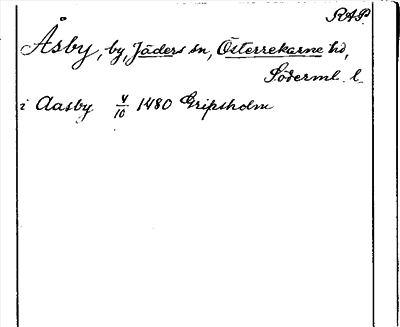 RAP.
Åsby, by, Jäders sn, Österrekarne hd,
Söderml. l.
i Aasby 4/10 1480 Gripsholm